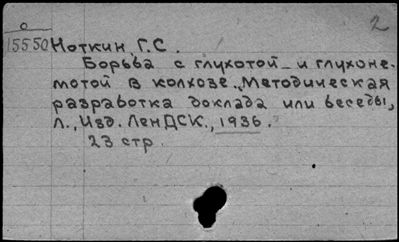 2
О
15550 Ноткин, Г.С.
Борьба с глухотой и глухоне-
мотой в колхозе. „Методическая
разработка доклада или беседы„
Л., Изд. ЛенДСК., 1936.
23 стр.